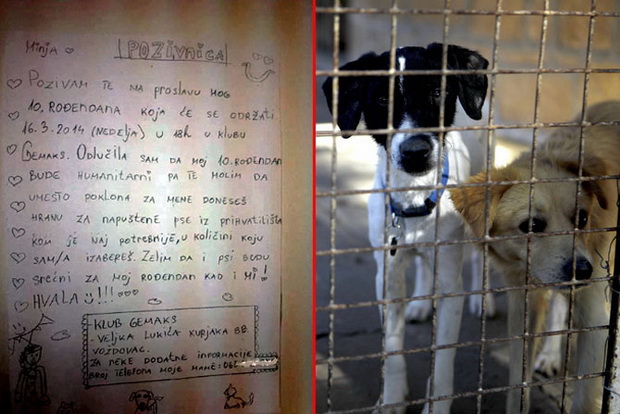 Minja
POZIVNICA
POZIVAM TE NA PROSLAVU MOG
10. ROĐENDANA KOJA ĆE SE ODRŽATI
16.3.2014 (NEDELJA) U 18h U KLUBU
GEMAKS. ODLUČILA SAM DA MOJ 10.ROĐENDAN
BUDE HUMANITARNI PA TE MOLIM DA
UMESTO POKLONA ZA MENE DONESEŠ
HRANU ZA NAPUŠTENE PSE IZ PRIHVATILIŠTA
KOM JE NAJ POTREBNIJE, U KOLIČINI KOJU
SAM/A IZABEREŠ. ŽELIM DA I PSI BUDU
SREĆNI ZA MOJ ROĐENDAN KAO I MI!
HVALA !!!
KLUB GEMAKS
- VELJKA LUKIĆA KURJAKA 8B.
VOŽDOVAC.
ZA NEKE DODATNE INFORMACIJE
BROJ TELEFONA MOJE MAME: